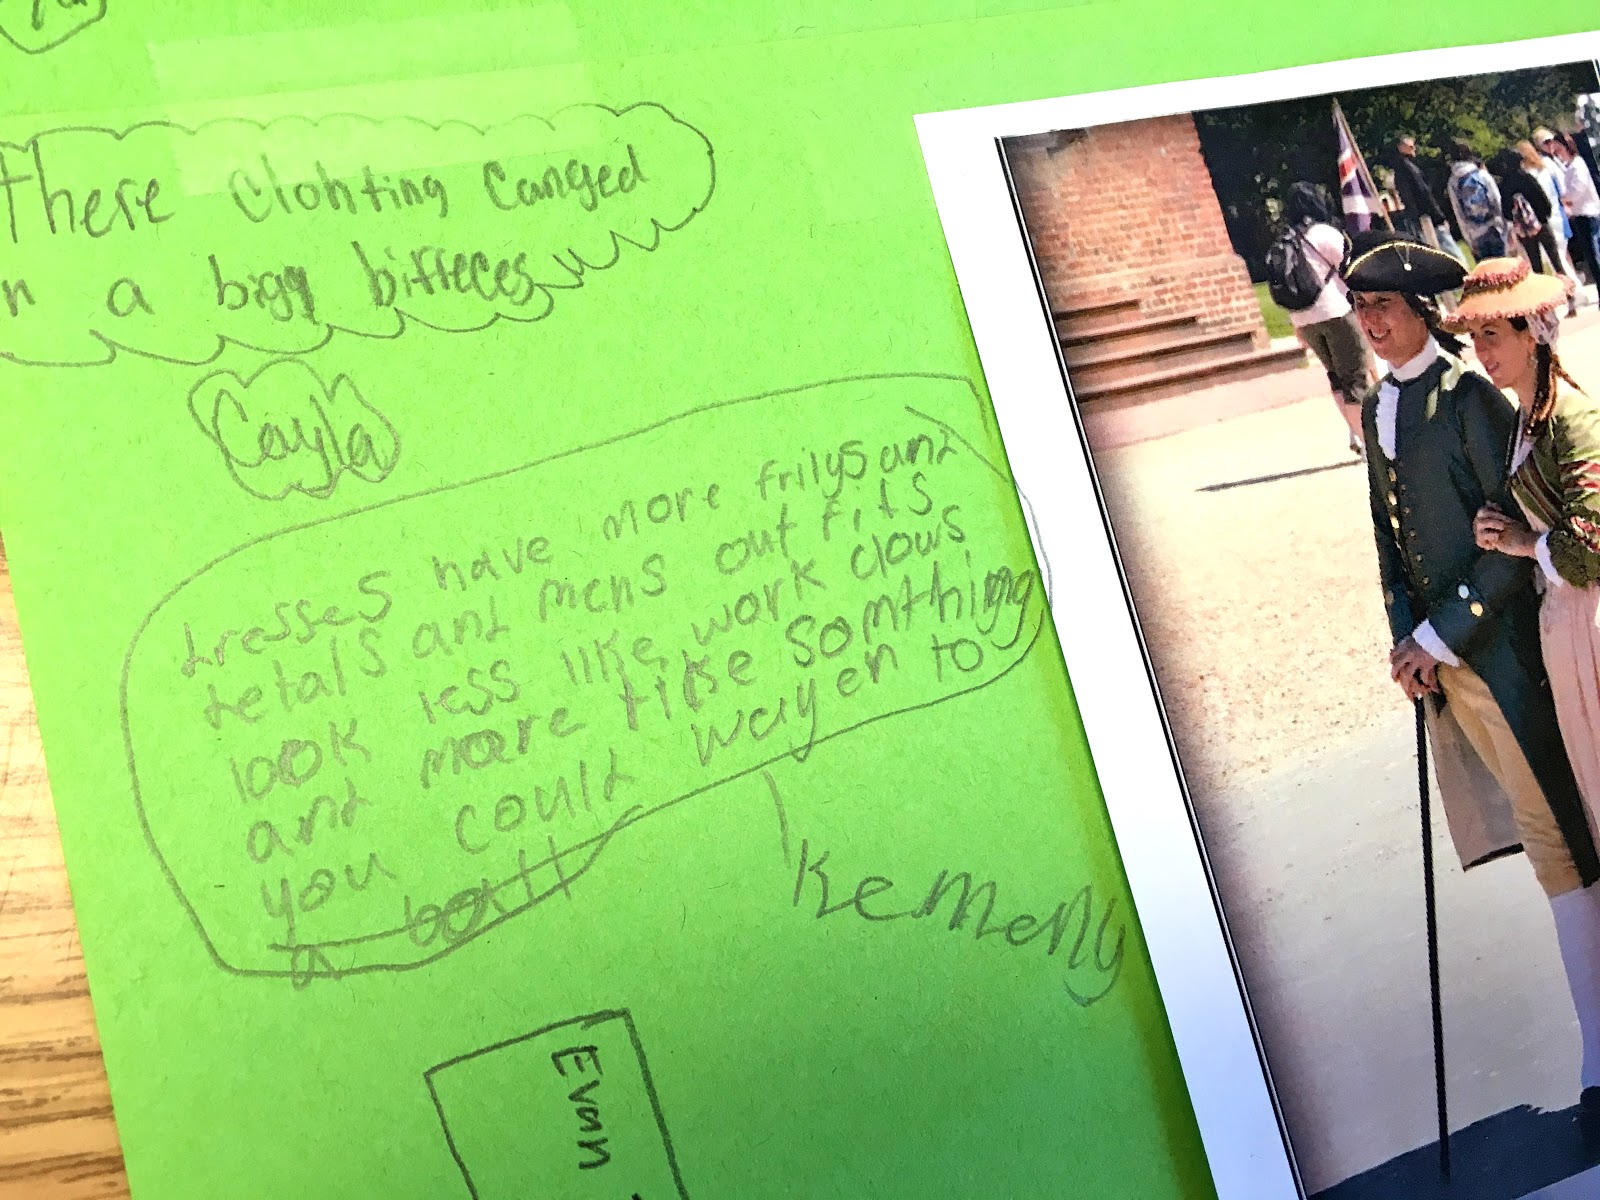 There clohting canged
n a bigg biffeces
Cayla
dresses have more frilys and
detals and mens out fits
look less like work clows
and more like somthing
you could wayer to
a ball
Kemeny
Evan